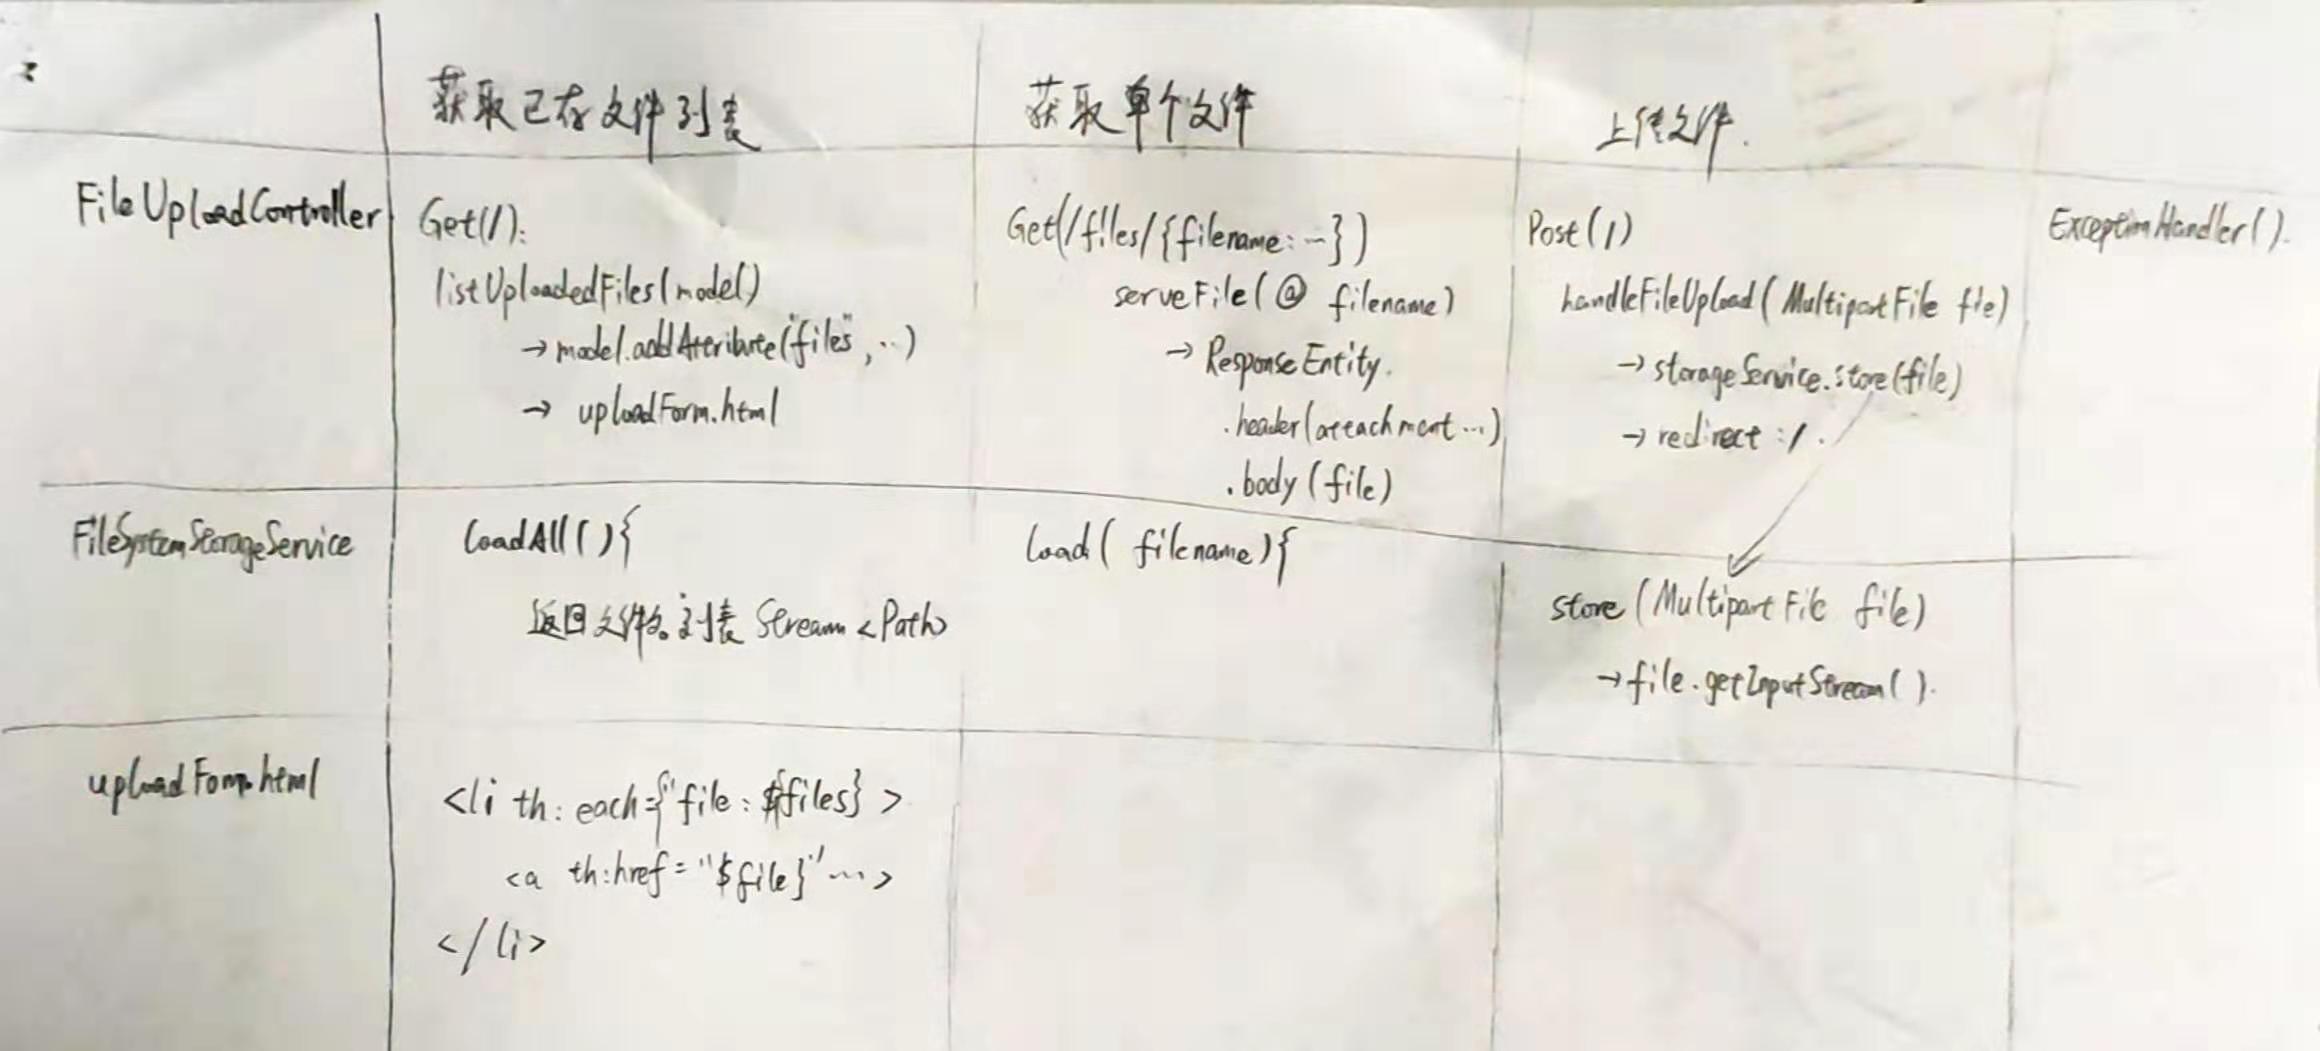 获取已存文件列表
获取单个文件
上传文件.
FileUploadController
Get(/):
listUploadedFiles(model)
→ model.addAttribute("files", ..)
→ uploadForm.html
Get(/files/{filename: ...})
serveFile(@ filename)
→ ResponseEntity.
.header(attachment ...)
.body(file)
Post(/)
handleFileUpload(MultipartFile file)
→ storageService.store(file)
→ redirect:/.
ExceptionHandler().
FileSystemStorageService
loadAll(){
返回文件名列表 Stream<Path>
load( filename){
store (MultipartFile file)
→ file.getInputStream().
uploadForm.html
<li th:each={"file: ${files} >
<a th:href="${file}" ... >
</li>